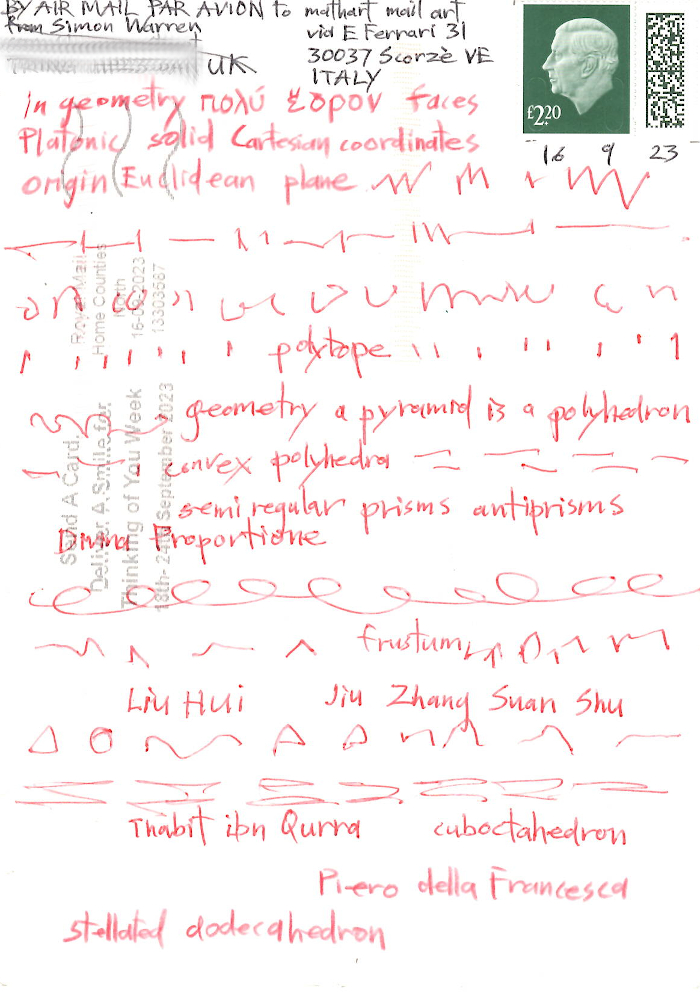 BY AIR MAIL PAR AVION to mathart mail art
from Simon Warren
via E Ferrari 31
UK
30037 Scorzè VE
ITALY
£2.20
16 9 23
in geometry πολύ ἕδρον faces
Platonic solid Cartesian coordinates
origin Euclidean plane
polytope
geometry a pyramid is a polyhedron
convex polyhedra
semiregular prisms antiprisms
Divina Proportione
frustum
Liu Hui Jiu Zhang Suan Shu
Thabit ibn Qurra cuboctahedron
Piero della Francesca
stellated dodecahedron
Royal Mail
Home Counties
North
16-09-2023
13303587
Send A Card.
Deliver A Smile for
Thinking of You Week
18th- 24th September 2023